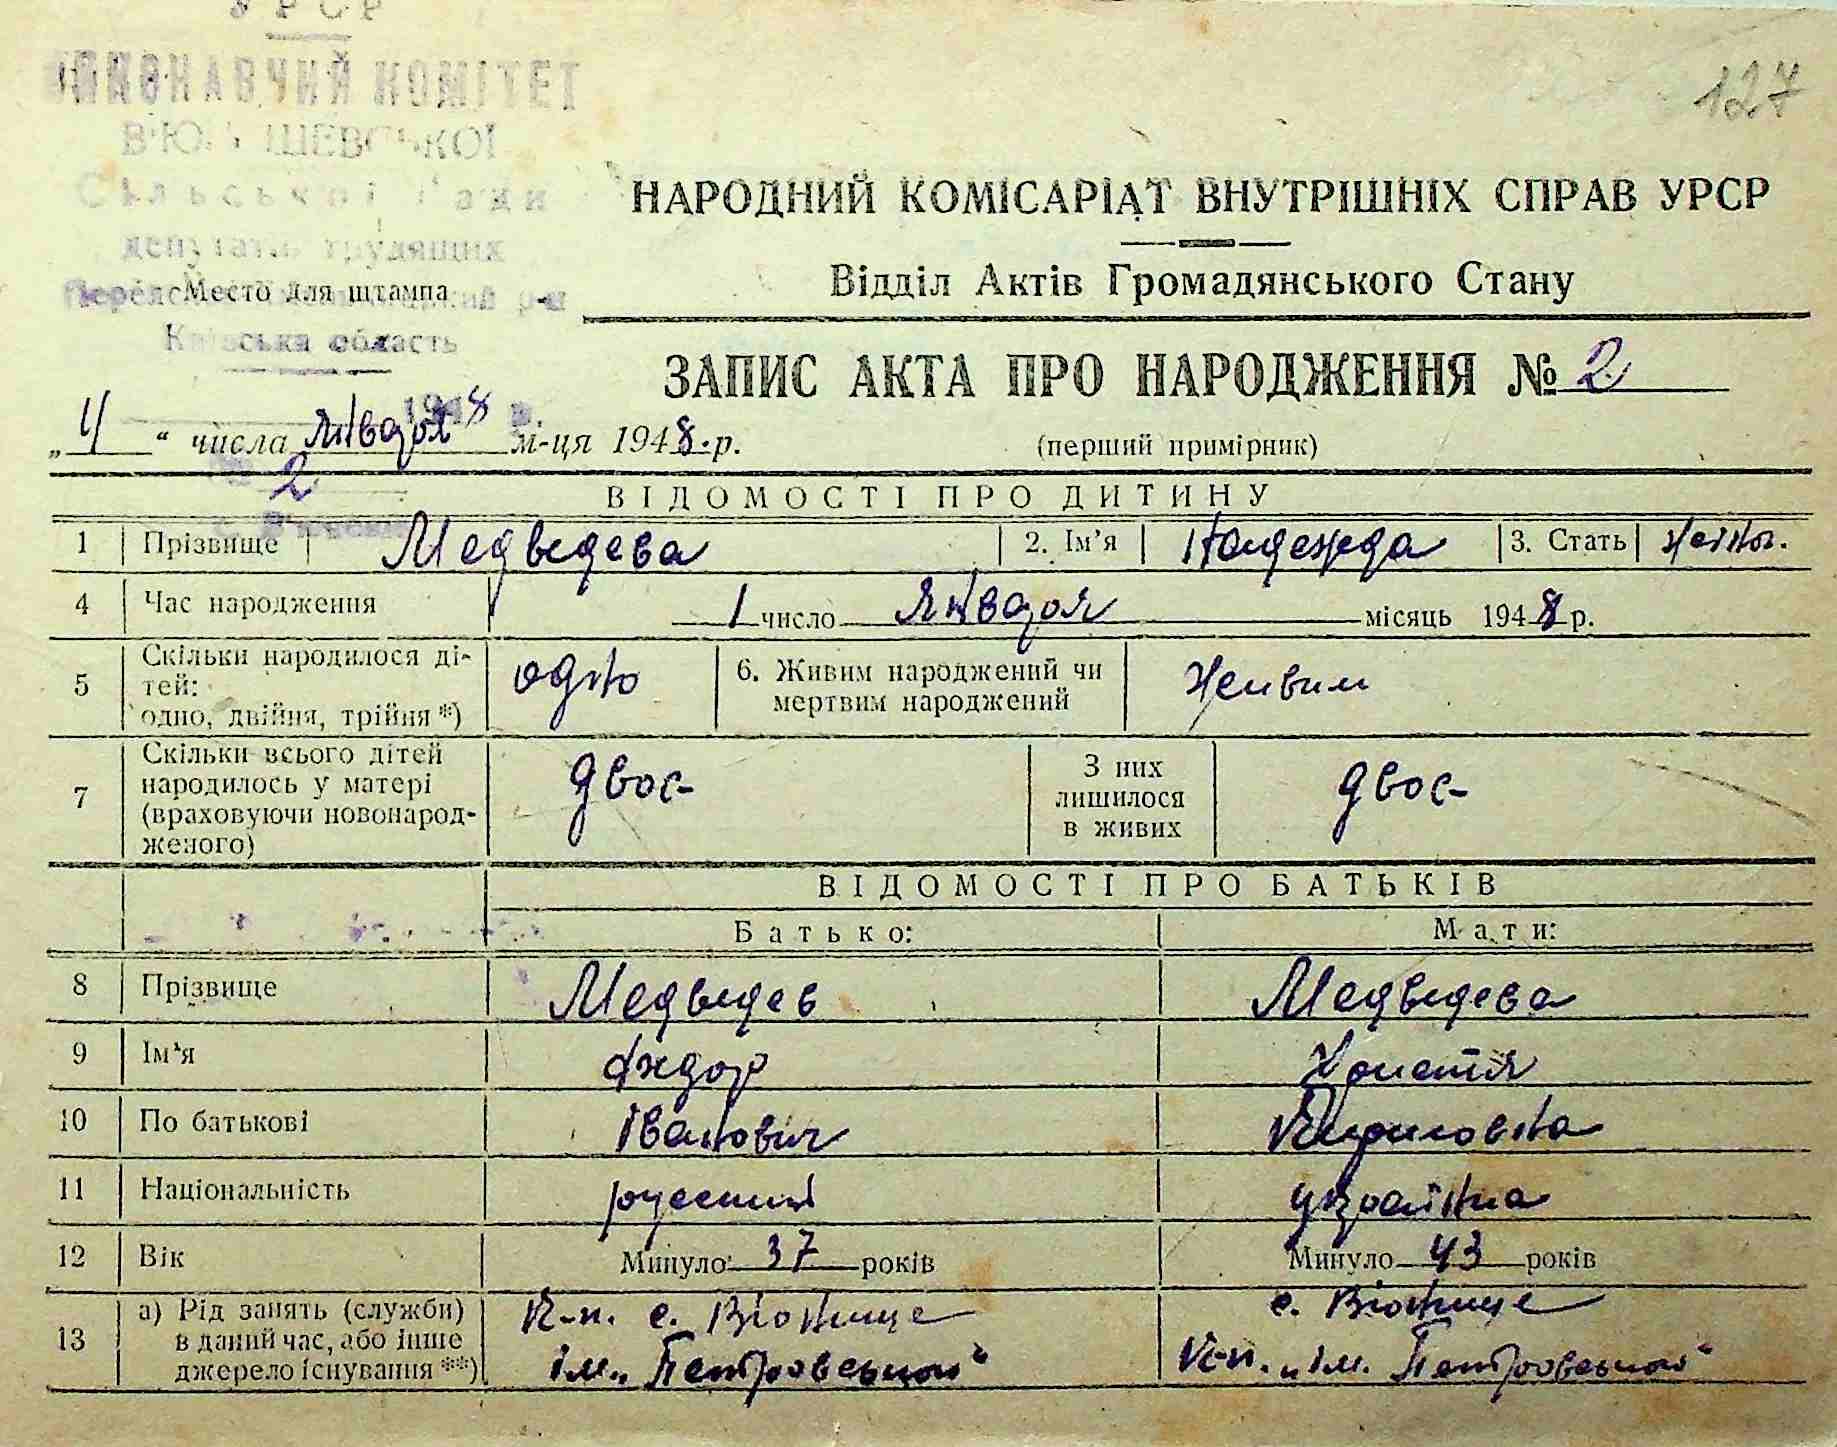 УРСР
ВИКОНАВЧИЙ КОМІТЕТ
Сільської Ради
депутатів трудящих
р-н
Київська область
127
НАРОДНИЙ КОМІСАРІАТ ВНУТРІШНІХ СПРАВ УРСР
Відділ Актів Громадянського Стану
Место для штампа
ЗАПИС АКТА ПРО НАРОДЖЕННЯ № 2
(перший примірник)
„4“ числа января м-ця 1948 р.
2
ВІДОМОСТІ ПРО ДИТИНУ
1 Прізвище Медведева 2. Ім'я Надежда 3. Стать жіноч.
4 Час народження 1 число января місяць 1948 р.
5 Скільки народилося ді-
тей:
одно, двійня, трійня *) одно 6. Живим народжений чи
мертвим народжений живим
7 Скільки всього дітей
народилось у матері
(враховуючи новонарод-
женого) двоє З них
лишилося
в живих двоє
ВІДОМОСТІ ПРО БАТЬКІВ
Батько: Мати:
8 Прізвище Медведев Медведева
9 Ім'я Федор Христя
10 По батькові Іванович Кириловна
11 Національність русский українка
12 Вік Минуло 37 років Минуло 43 років
13 а) Рід занять (служби)
в даний час, або інше
джерело існування **)
к-п. с. Віюнище с. Віюнище
ім. „Петровського“ к-п. „ім. Петровського“